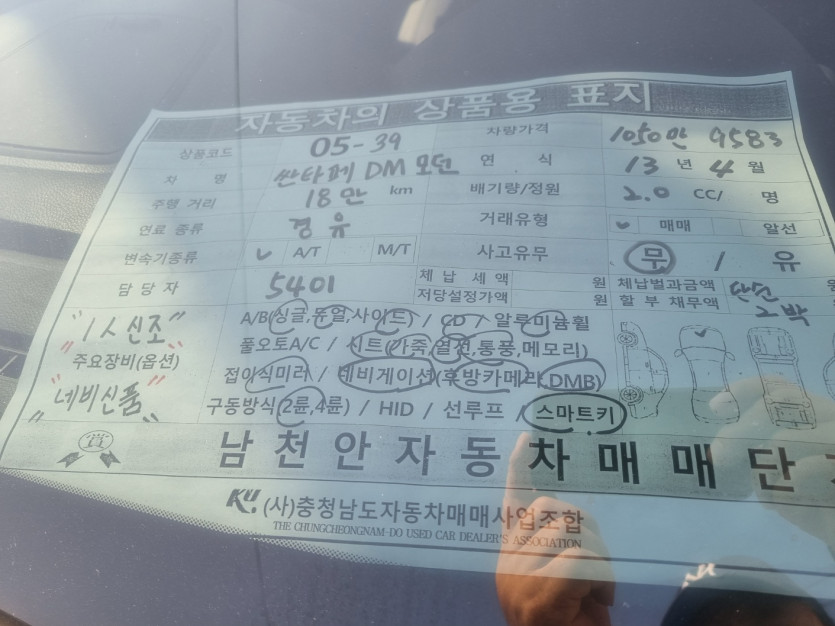 자동차의 상품용 표지
상품코드 05-39 차량가격 1050만 9583
차 명 싼타페 DM 모던 연 식 13 년 4 월
주행 거리 18만 km 배기량/정원 2.0 CC/ 명
연료 종류 경유 거래유형 ✓ 매매 알선
변속기종류 ✓ A/T M/T 사고유무 무 / 유
담 당 자 5401 체 납 세 액 원 체납벌과금액
저당설정가액 원 할 부 채무액
"1人신조" A/B(싱글,듀얼,사이드) / CD / 알루미늄휠
주요장비(옵션) 풀오토A/C / 시트(가죽,열선,통풍,메모리)
"네비신품" 접이식미러 / 네비게이션(후방카메라,DMB)
구동방식(2륜,4륜) / HID / 선루프 / 스마트키
남천안자동차매매단
KU. (사)충청남도자동차매매사업조합
THE CHUNGCHEONGNAM-DO USED CAR DEALER'S ASSOCIATION